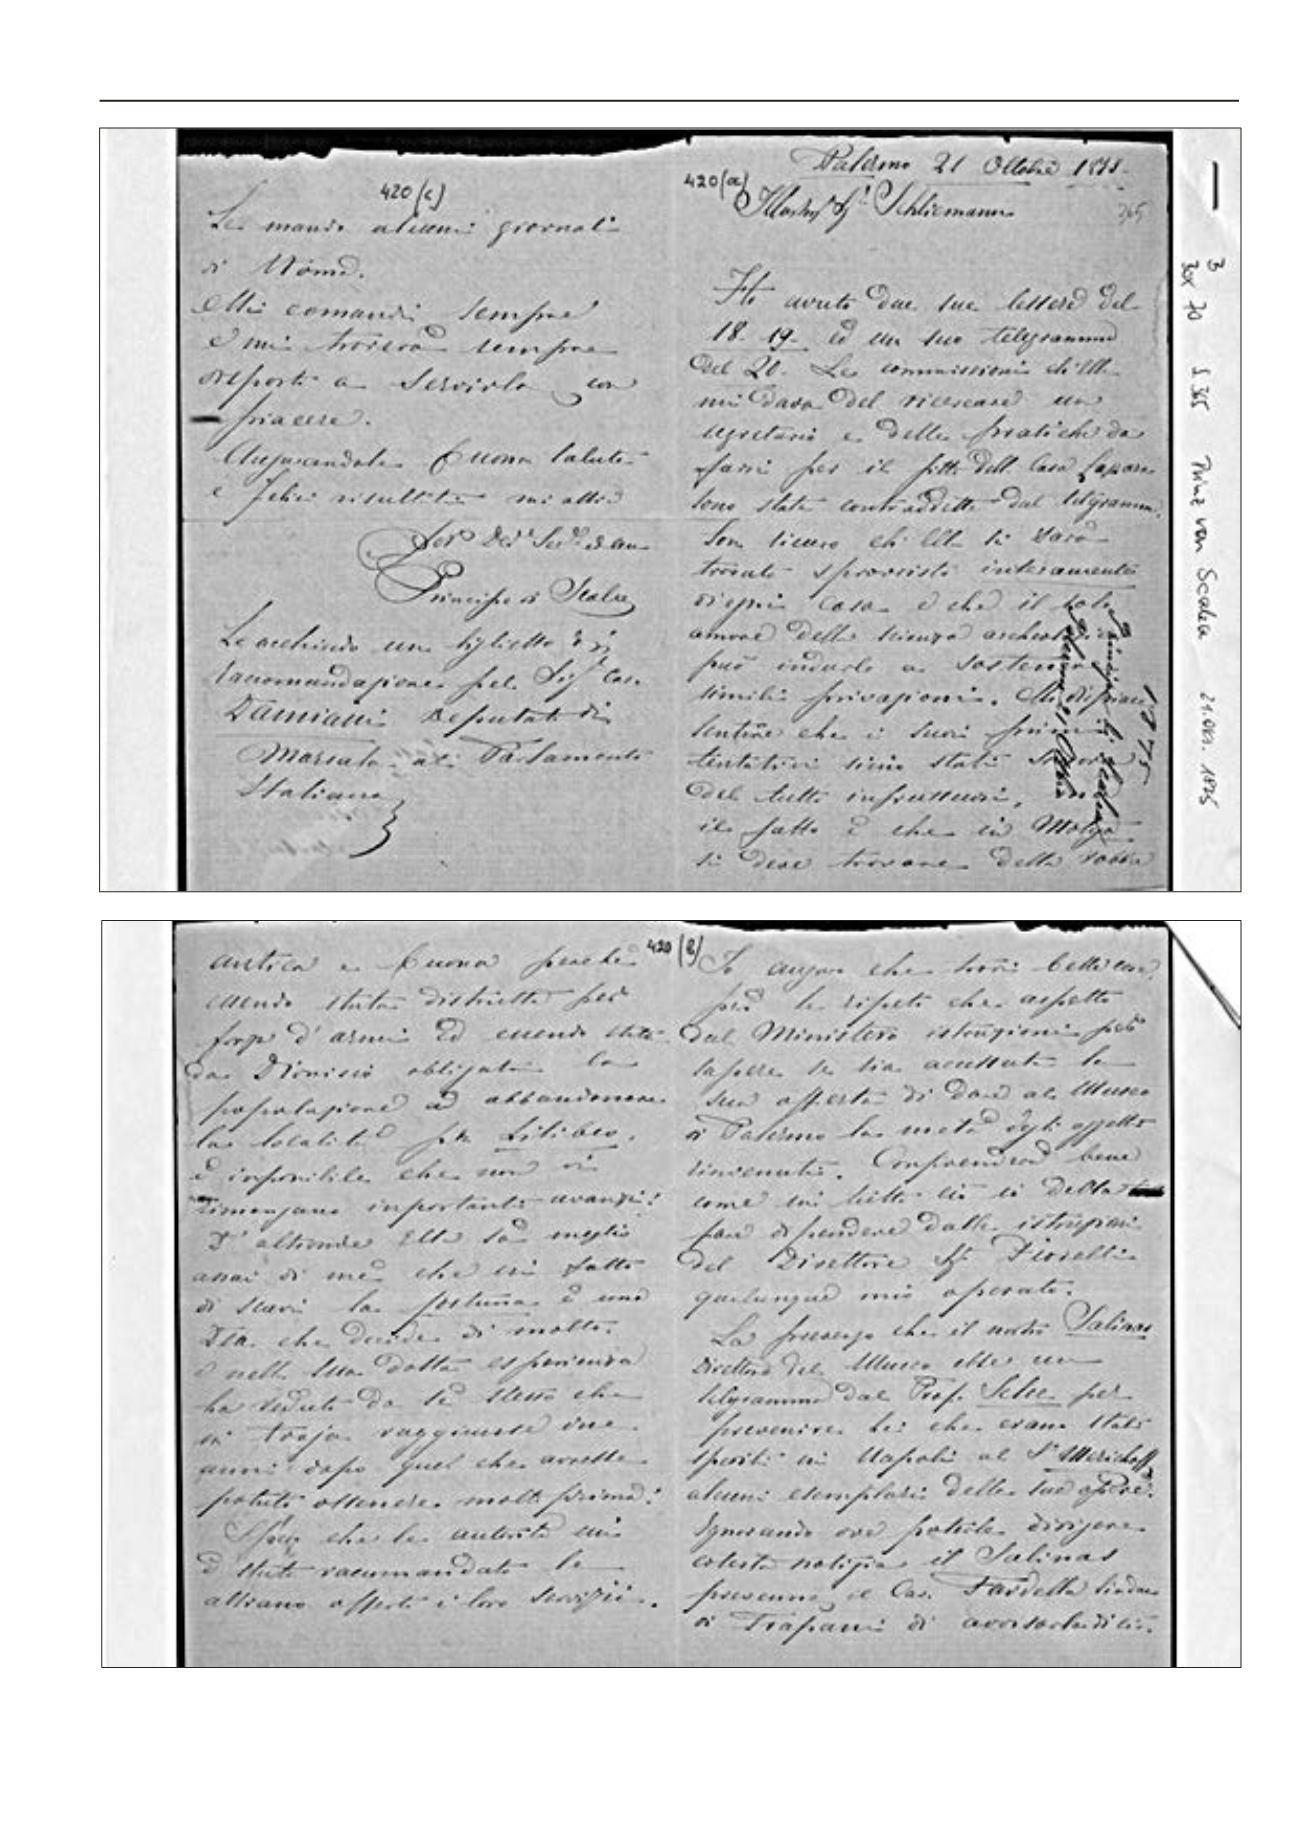 420(c)
Le mando alcuni giornali
di Roma.
Mi comandi sempre
e mi troverà sempre
disposto a servirla con
piacere.
Augurandole buona salute
e felici risultati mi
Principe di Scalea
Le acchiudo un biglietto di
raccomandazione pel Sigr Cav.
Damiani Deputato di
Marsala al Parlamento
Italiano
420(a)
Palermo 21 Ottobre 1875.
Schliemann
365
Ho avuto due sue lettere del
18. 19. ed un suo telegramma
del 20. Le commissioni ch'Ella
mi dava del ricercare un
segretario e delle pratiche da
farsi per il fitto della Casa
sono state contraddette dal telegramma.
Son sicuro ch'Ella si sarà
trovato sprovvisto interamente
di ogni cosa e che il solo
amore della scienza archeologica
può indurlo a sostenere
simili privazioni. Mi dispiace
sentire che i suoi primi
tentativi sieno stati
del tutto infruttuosi,
il fatto è che in Motya
si deve trovare della robba
Principe di Scalea
Palermo 21 Ottobre
1875
3
Box 70 S. 365 Prinz von Scalea 21.Okt. 1875
antica e buona perchè
essendo stata distrutta per
forza d'armi ed essendo stata
da Dionisio obligata la
popolazione ad abbandonare
la località per Lilibeo,
è impossibile che non vi
rimangano importanti avanzi!
D'altronde Ella sa meglio
assai di me che in fatto
di scavi la fortuna è una
Dea che decide di molto.
e nella sua dotta esperienza
ha veduto da se stesso che
in Troja raggiunse due
anni dopo quel che avrebbe
potuto ottenere molto prima!
Spero che le autorità cui
è stato raccomandato le
abbiano offerti i loro servizii.
420(b)
Io auguro che trovi belle cose
però le ripeto che aspetto
dal Ministero istruzioni per
sapere se sia accettata la
sua offerta di dare al Museo
di Palermo la metà degli oggetti
rinvenuti. Comprenderà bene
come
dipendere dalle istruzioni
del Direttore Sigr Fiorelli
qualunque mio operato.
La prevengo che il nostro Salinas
Direttore del Museo ebbe un
telegramma dal Prof. per
prevenire Lei che erano stati
spediti in Napoli al
alcuni esemplari delle sue opere.
Ignorando ove poterle dirigere
cotesta notizia il Salinas
prevenne il Cav. Fardella Sindaco
di Trapani di avvisarla di ciò.